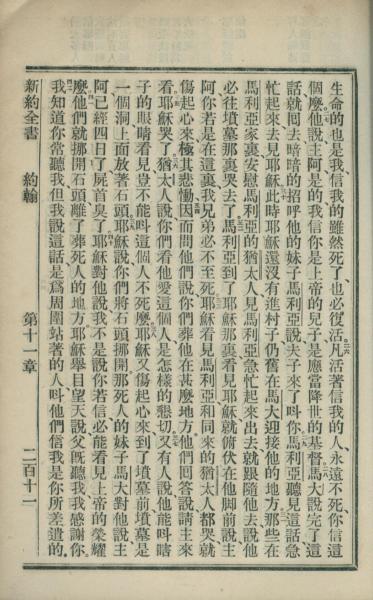 生命的也是我信我的雖然死了也必復活凡活著信我的人永遠不死你信這
個麼他說主阿是的我信你是上帝的兒子是應當降世的基督馬大說完了這
話就囘去暗暗的招呼他的妹子馬利亞說夫子來了呌你馬利亞聽見這話急
忙起來去見耶穌此時耶穌還沒有進村子仍舊在馬大迎接他的地方那些在
馬利亞家裏安慰馬利亞的猶太人見馬利亞急忙起來出去就跟隨他去說他
必往墳墓那裏哭去了馬利亞到了耶穌那裏看見耶穌就俯伏在他脚前說主
阿你若是在這裏我兄弟必不至死耶穌看見馬利亞和同來的猶太人都哭就
傷起心來極其悲慟因而問他們說你們葬他在甚麼地方他們囘答說請主來
看耶穌哭了猶太人說你們看他愛這個人是怎樣的懇切又有人說他能呌瞎
子的眼睛看見豈不能呌這個人不死麼耶穌又傷起心來到了墳墓前墳墓是
一個洞上面放著石頭耶穌說你們將石頭挪開那死人的妹子馬大對他說主
阿已經四日了屍首臭了耶穌對他說我不是說你若信必能看見上帝的榮耀
麼他們就挪開石頭離了葬死人的地方耶穌舉目望天說父旣聽我我感謝你
我知道你常聽我但我說這話是爲周圍站著的人呌他們信我是你所差遣的
新約全書 約翰 第十一章 二百十一